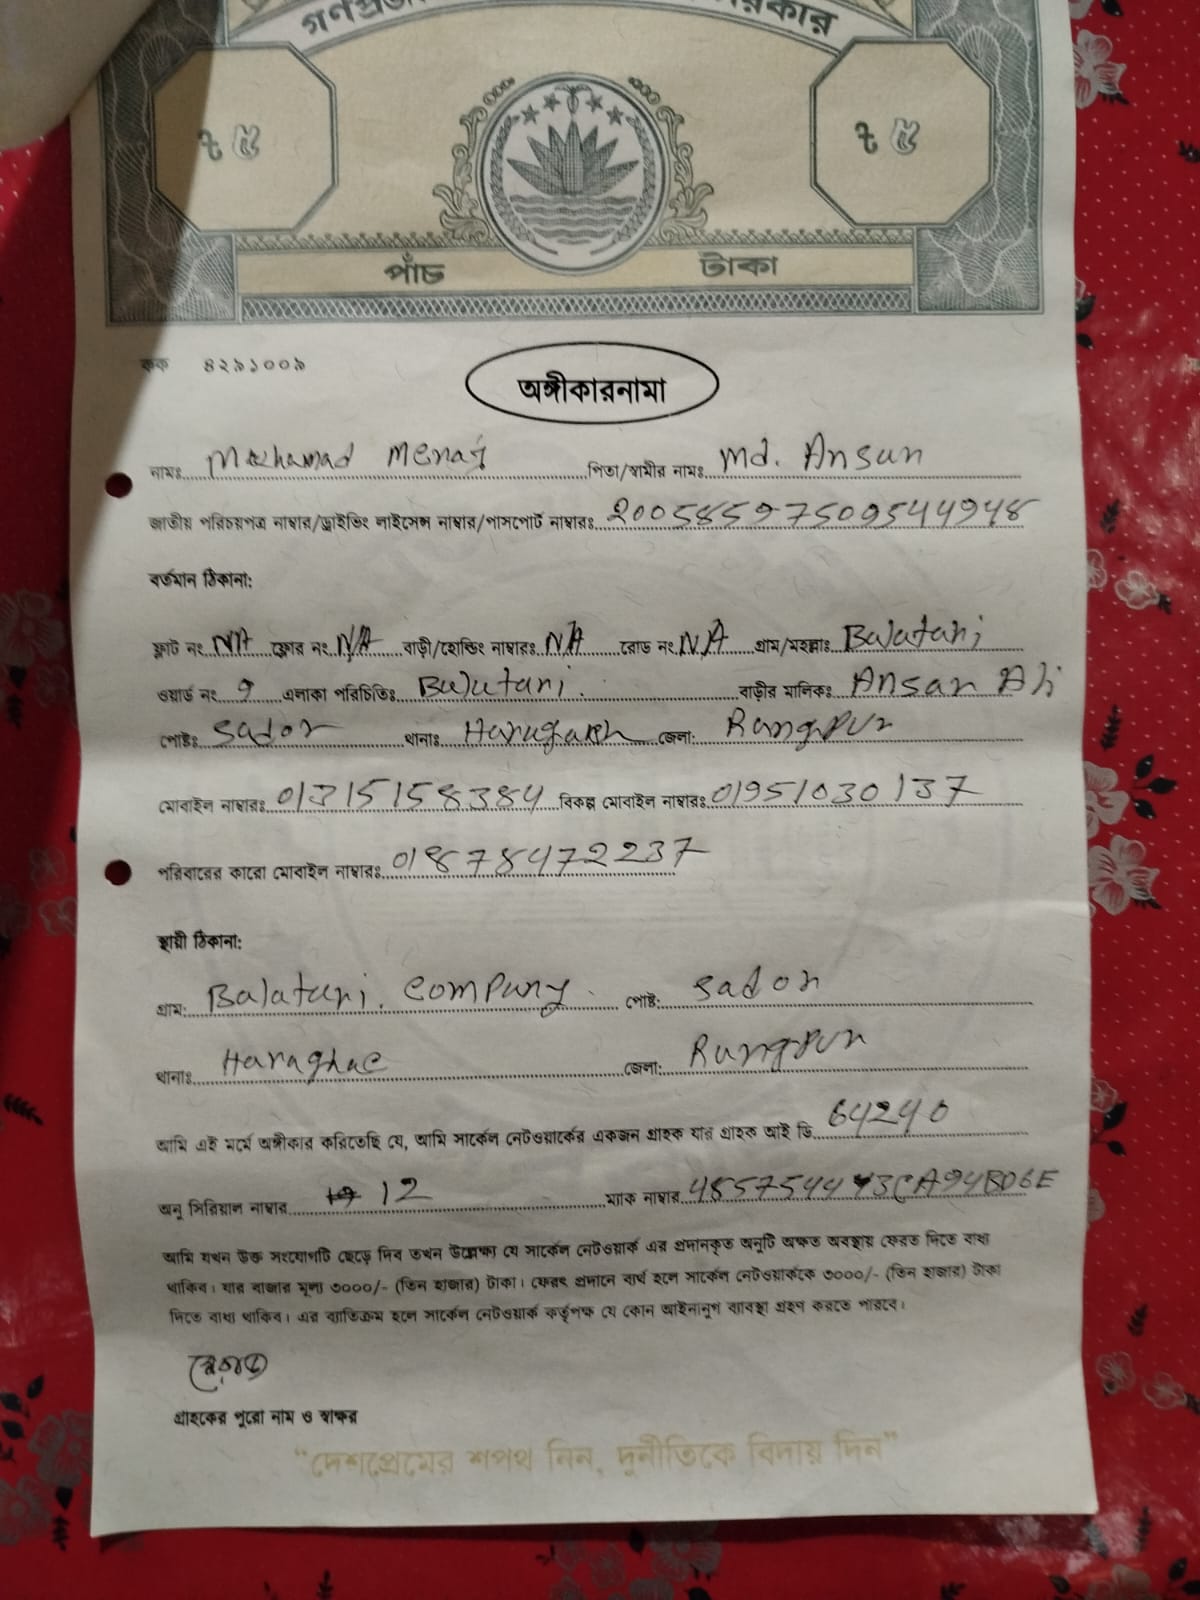 ৳ ৫ ৳ ৫
পাঁচ টাকা
কক ৪২৯১০০৯
অঙ্গীকারনামা
নামঃ Mozhamad Menaj পিতা/স্বামীর নামঃ Md. Ansun
জাতীয় পরিচয়পত্র নাম্বার/ড্রাইভিং লাইসেন্স নাম্বার/পাসপোর্ট নাম্বারঃ
বর্তমান ঠিকানা:
ফ্লাট নং NA ফ্লোর নং N/A বাড়ী/হোল্ডিং নাম্বারঃ N/A রোড নং N/A গ্রাম/মহল্লাঃ Balatari
ওয়ার্ড নং 9 এলাকা পরিচিতিঃ Balatari. বাড়ীর মালিকঃ Ansar Ali
পোষ্টঃ Sador থানাঃ জেলা: Rangpur
মোবাইল নাম্বারঃ বিকল্প মোবাইল নাম্বারঃ 01951030137
পরিবারের কারো মোবাইল নাম্বারঃ 01878472237
স্থায়ী ঠিকানা:
গ্রাম: Balatari. Company পোষ্ট: Sador
থানাঃ জেলা: Rangpur
আমি এই মর্মে অঙ্গীকার করিতেছি যে, আমি সার্কেল নেটওয়ার্কের একজন গ্রাহক যার গ্রাহক আই ডি 64240
অনু সিরিয়াল নাম্বার 12 ম্যাক নাম্বার
আমি যখন উক্ত সংযোগটি ছেড়ে দিব তখন উল্লেক্ষ্য যে সার্কেল নেটওয়ার্ক এর প্রদানকৃত অনুটি অক্ষত অবস্থায় ফেরত দিতে বাধ্য
থাকিব। যার বাজার মূল্য ৩০০০/- (তিন হাজার) টাকা। ফেরৎ প্রদানে ব্যর্থ হলে সার্কেল নেটওয়ার্ককে ৩০০০/- (তিন হাজার) টাকা
দিতে বাধ্য থাকিব। এর ব্যাতিক্রম হলে সার্কেল নেটওয়ার্ক কর্তৃপক্ষ যে কোন আইনানুগ ব্যাবস্থা গ্রহণ করতে পারবে।
গ্রাহকের পুরো নাম ও স্বাক্ষর
“দেশপ্রেমের শপথ নিন, দুর্নীতিকে বিদায় দিন”